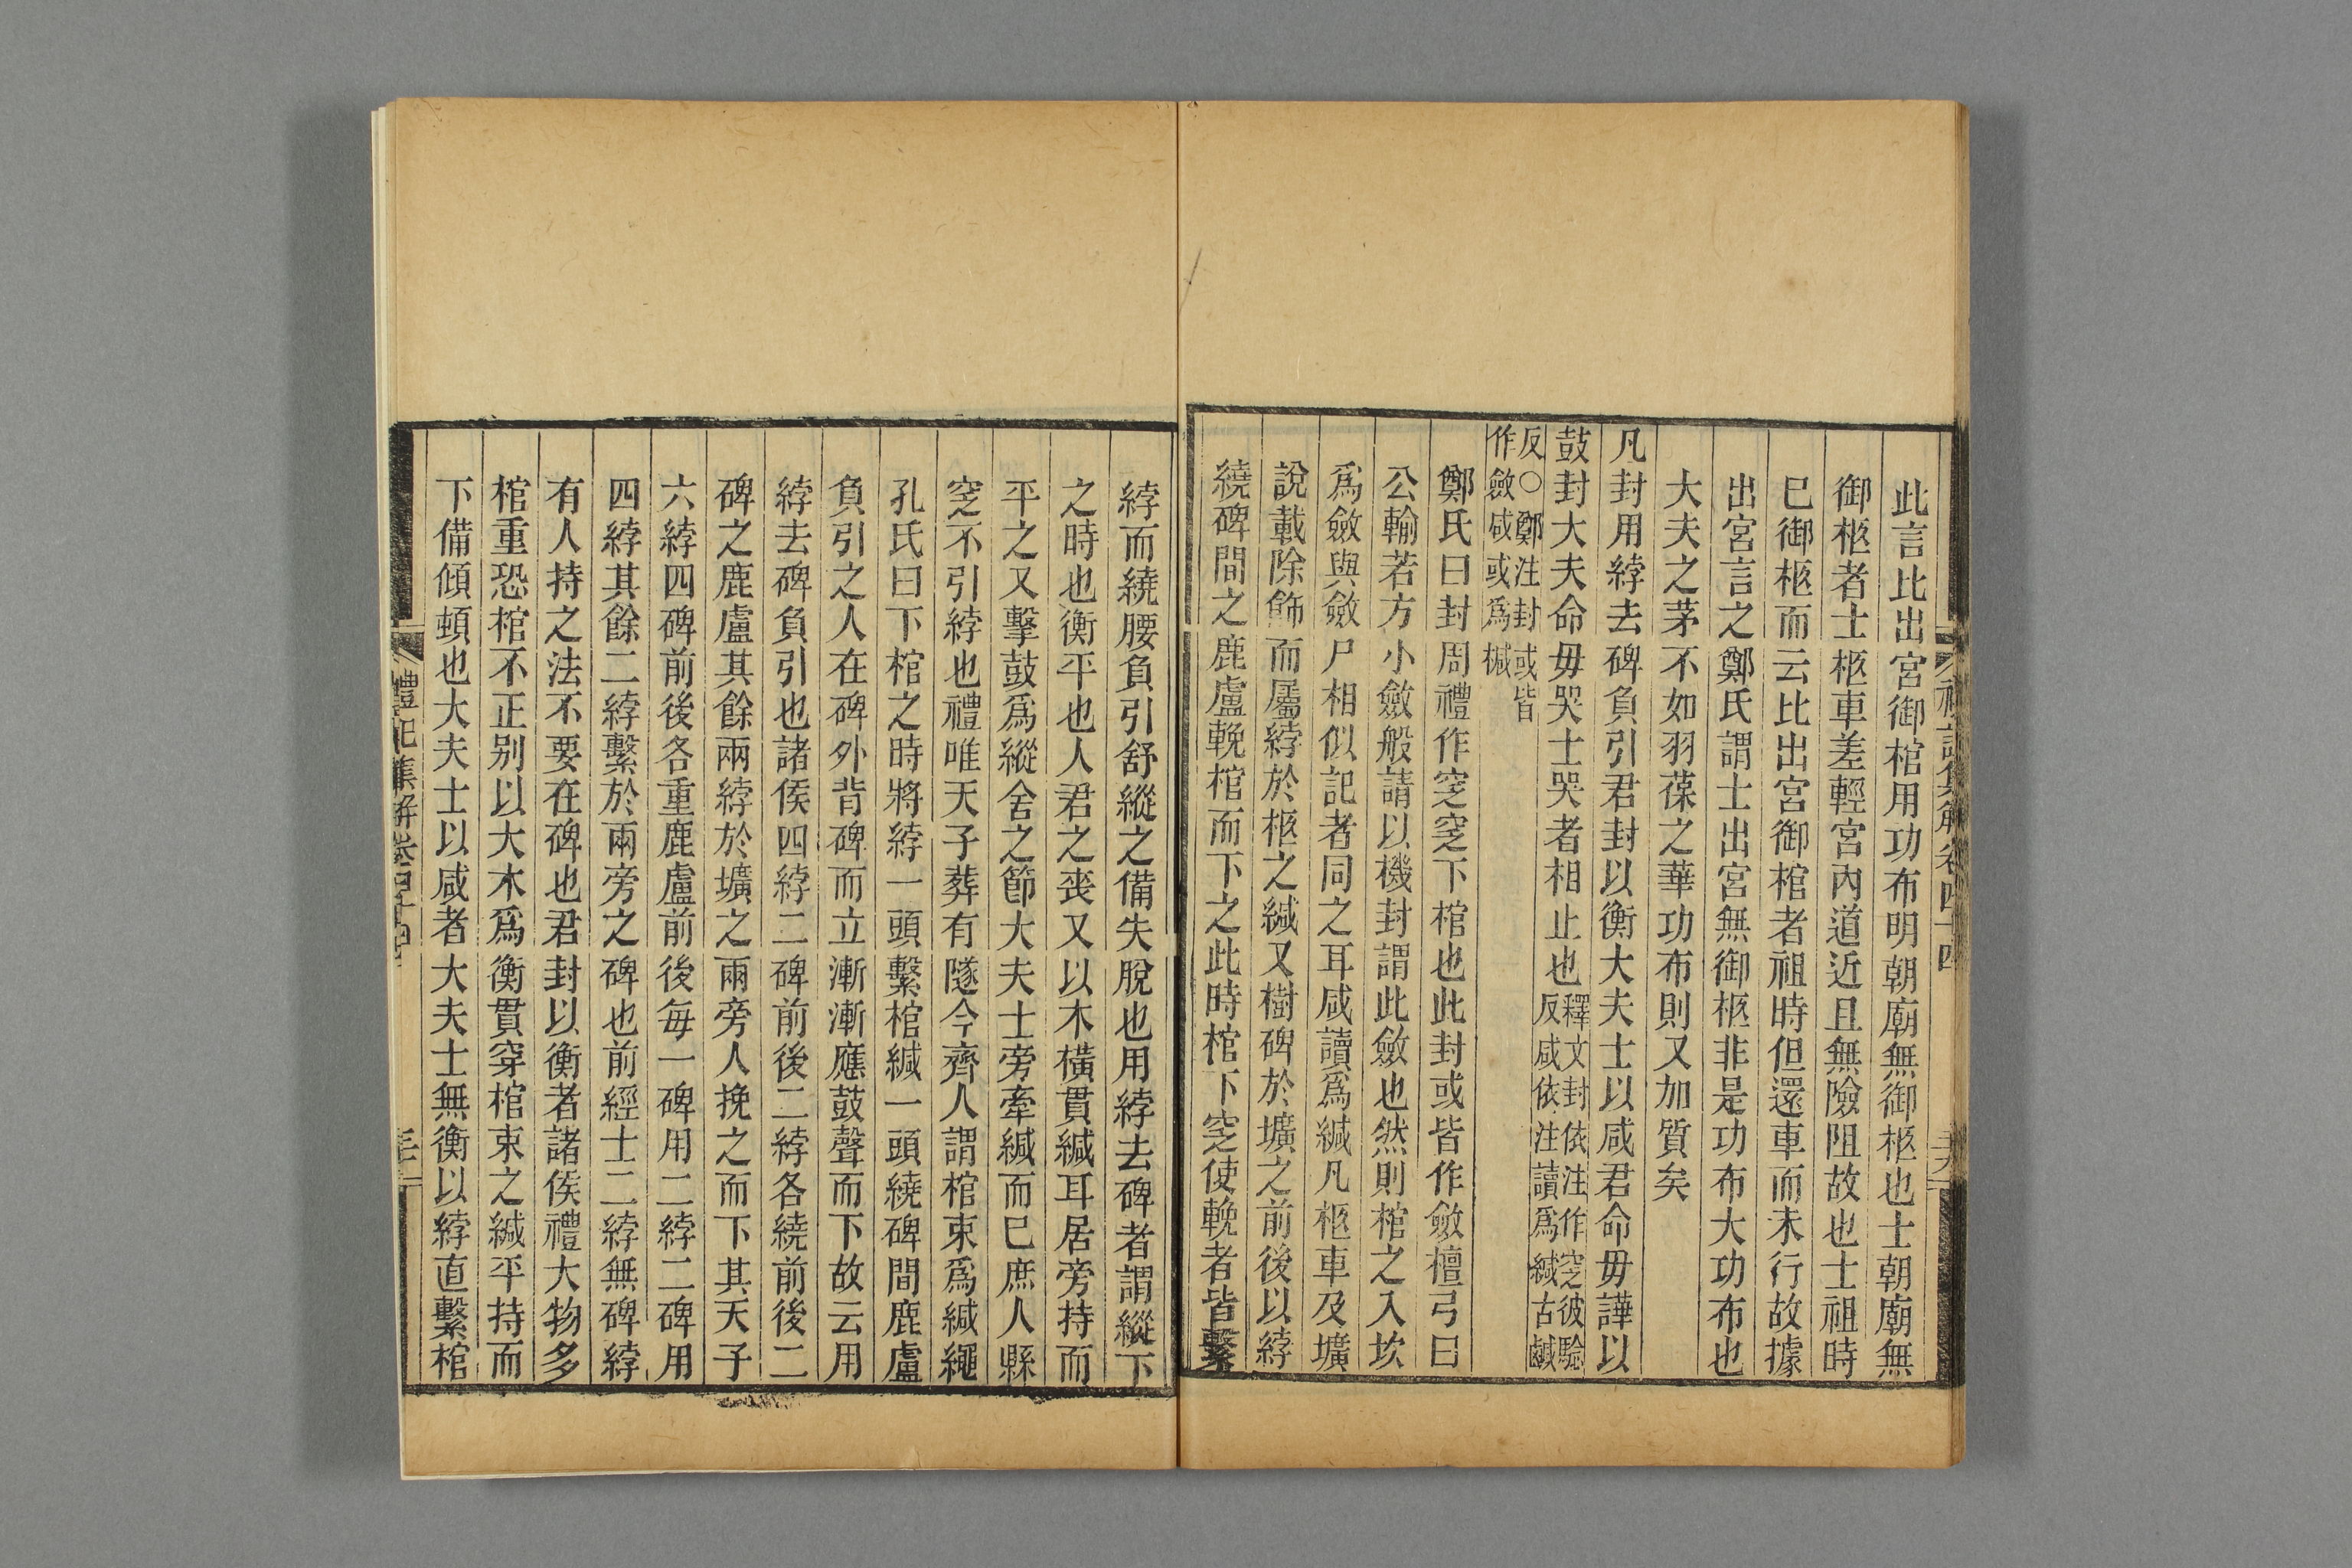 此言比出宮御棺用功布明朝廟無御柩也士朝廟無
御柩者士柩車差輕宮內道近且無險阻故也士祖時
巳御柩而云比出宮御棺者祖時但還車而未行故據
出宮言之鄭氏謂士出宮無御柩非是功布大功布也
大夫之茅不如羽葆之華功布則又加質矣
凡封用綍去碑負引君封以衡大夫士以咸君命毋譁以
鼓封大夫命毋哭士哭者相止也
釋文封依注作窆彼驗
反咸依注讀爲緘古鹹
反○鄭注封或皆
作斂咸或爲椷
鄭氏曰封周禮作窆窆下棺也此封或皆作斂檀弓曰
公輸若方小斂般請以機封謂此斂也然則棺之入坎
爲斂與斂尸相似記者同之耳咸讀爲緘凡柩車及壙
說載除飾而屬綍於柩之緘又樹碑於壙之前後以綍
繞碑間之鹿盧輓棺而下之此時棺下窆使輓者皆繫
綍而繞腰負引舒縱之備失脫也用綍去碑者謂縱下
之時也衡平也人君之喪又以木橫貫緘耳居旁持而
平之又擊鼓爲縱舍之節大夫士旁牽緘而巳庶人縣
窆不引綍也禮唯天子葬有隧今齊人謂棺束爲緘繩
孔氏曰下棺之時將綍一頭繫棺緘一頭繞碑間鹿盧
負引之人在碑外背碑而立漸漸應鼓聲而下故云用
綍去碑負引也諸侯四綍二碑前後二綍各繞前後二
碑之鹿盧其餘兩綍於壙之兩旁人挽之而下其天子
六綍四碑前後各重鹿盧前後每一碑用二綍二碑用
四綍其餘二綍繫於兩旁之碑也前經士二綍無碑綍
有人持之法不要在碑也君封以衡者諸侯禮大物多
棺重恐棺不正別以大木爲衡貫穿棺束之緘平持而
下備傾頓也大夫士以咸者大夫士無衡以綍直繫棺
禮記集解卷四十四